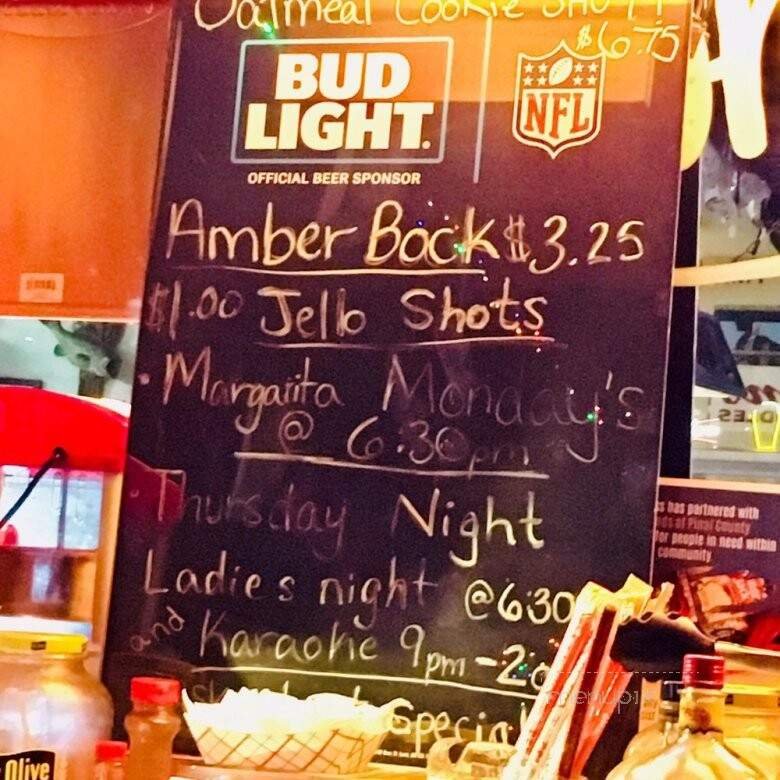 Oatmeal Cookie Shot
$6.75
BUD
LIGHT.
NFL
OFFICIAL BEER SPONSOR
Amber Bock $3.25
$1.00 Jello Shots
Margarita Monday's
@ 6:30pm
Thursday Night
Ladies night @630
and Karaoke 9pm-2
Special
has partnered with
of Pinal County
for people in need within
community
Olive
menupix